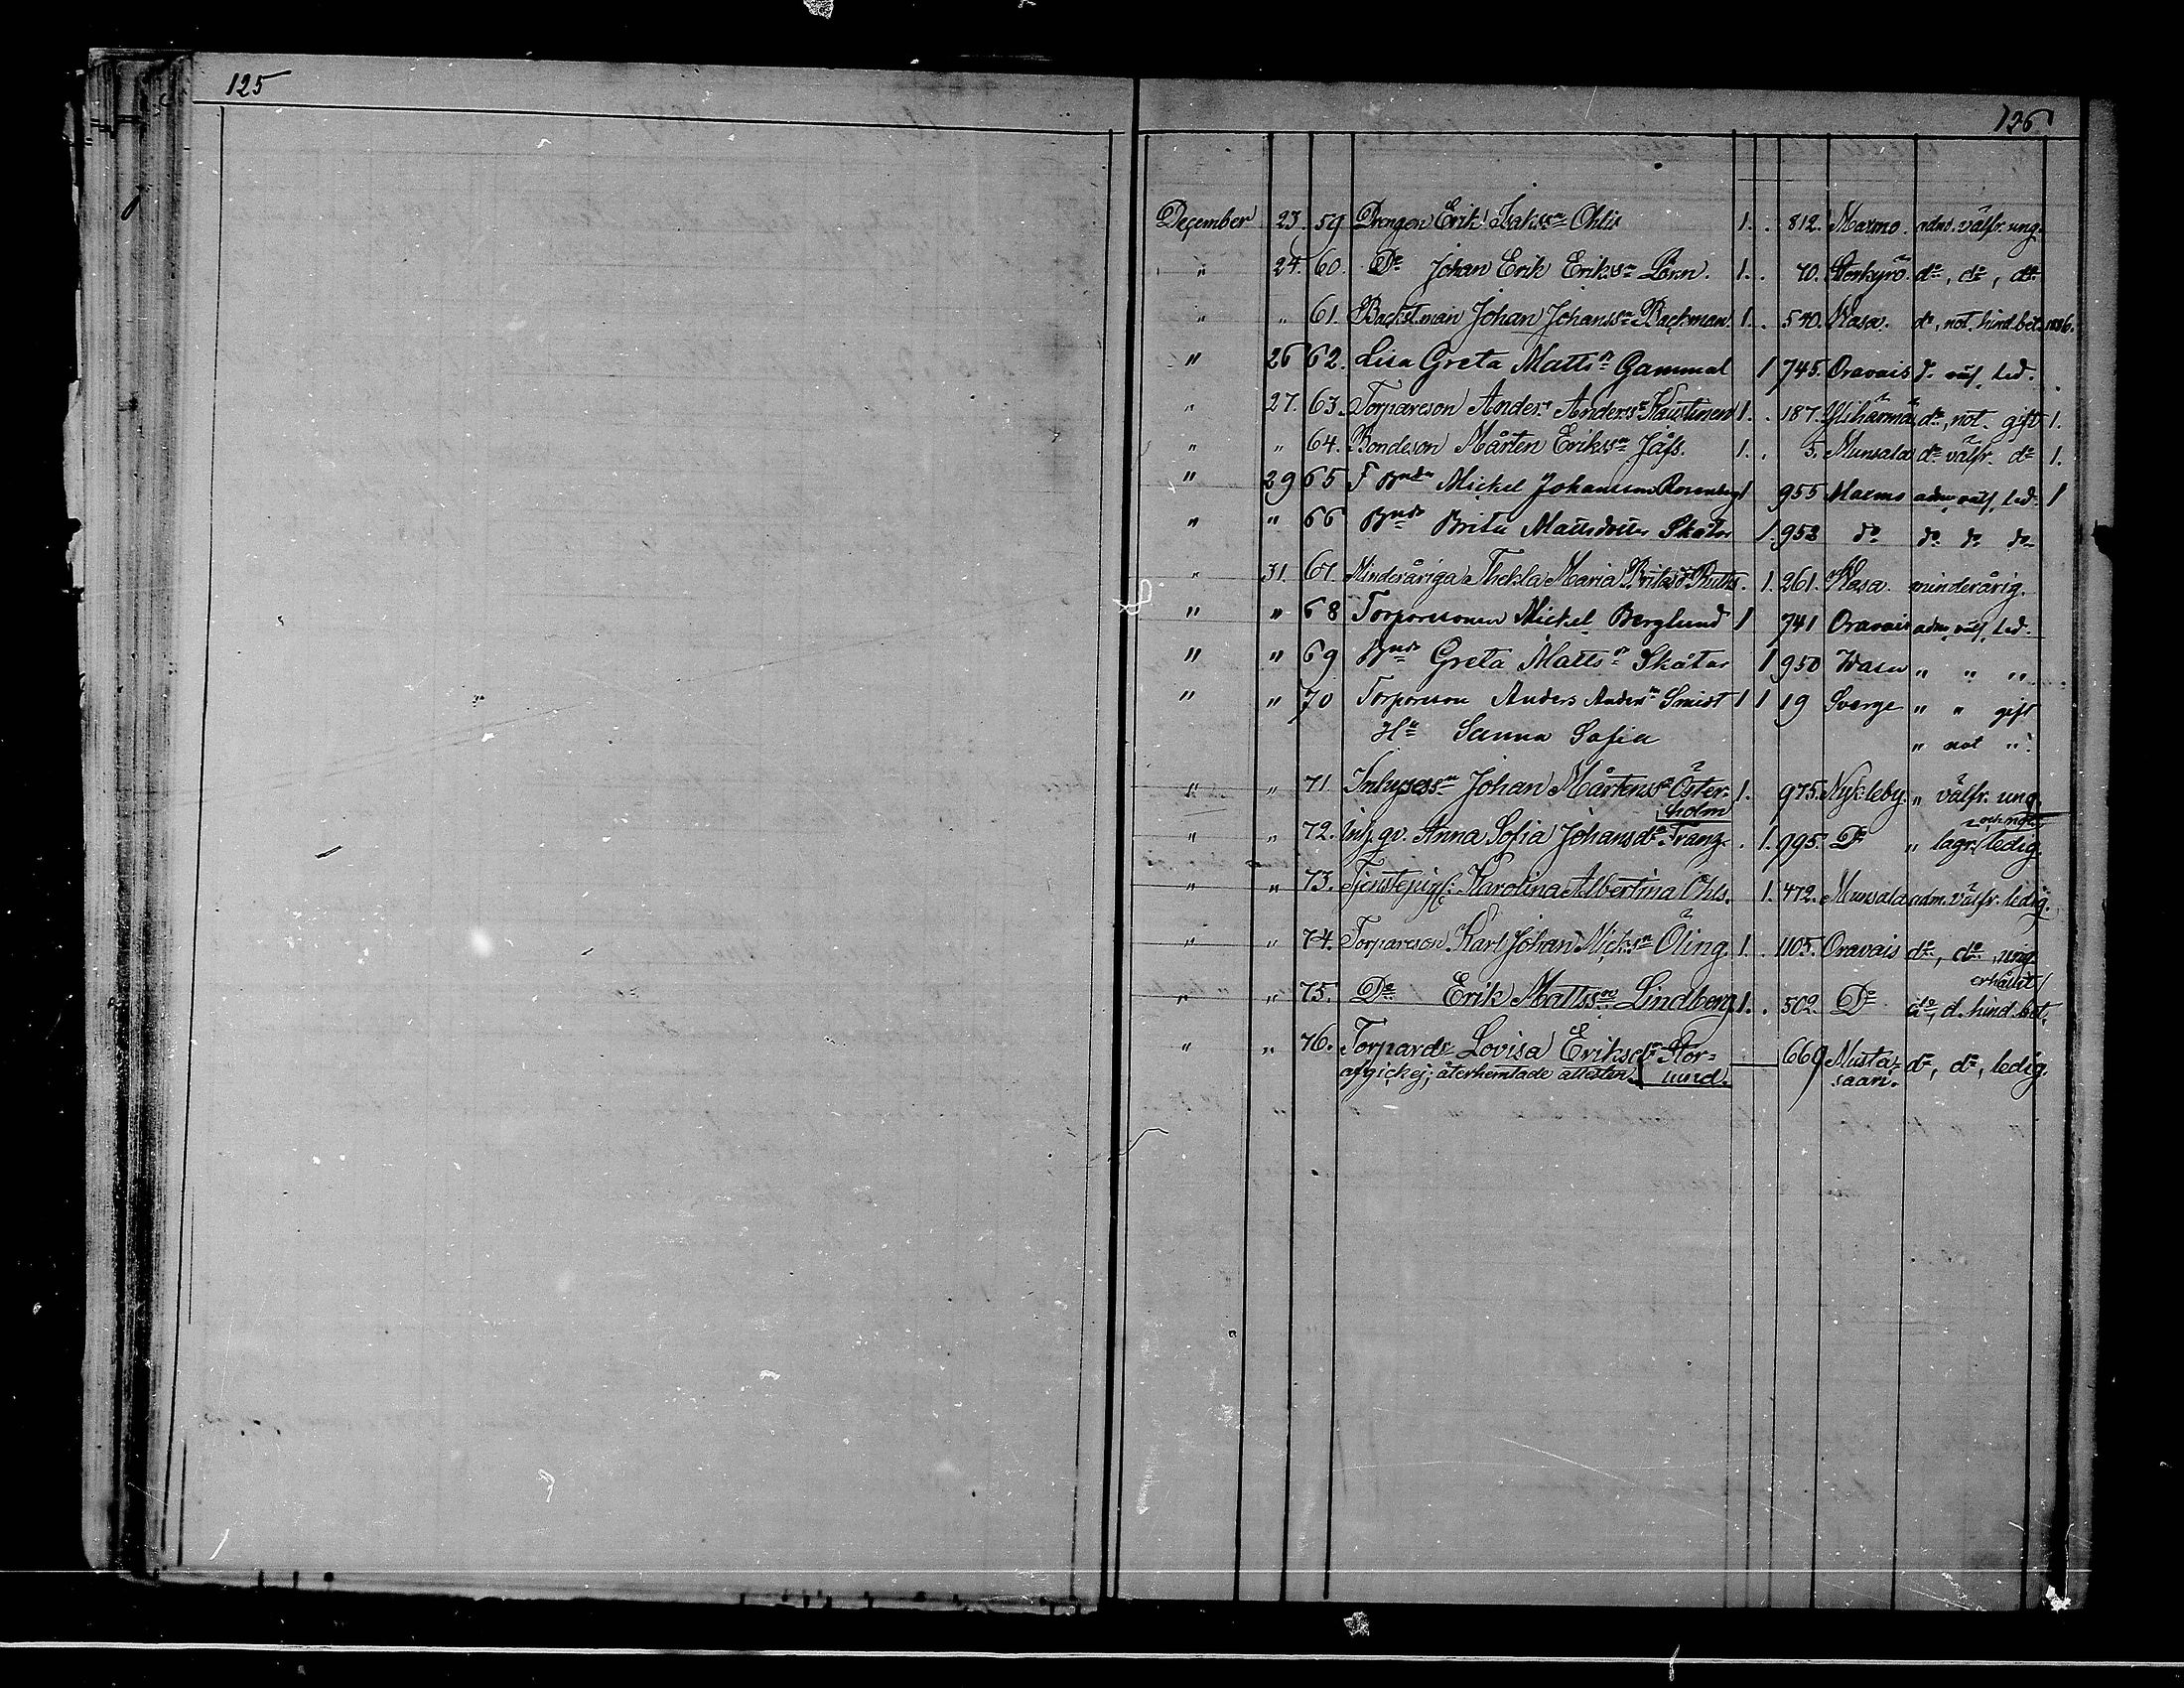 125
126
December 23. 59 Drengen Erik Isakss:n Ohlis 1. . 812. Maxmo. adm. välfr. ung.
" 24. 60. D:o Johan Erik Erikss:n Lönn. 1. . 70. Storkyro. d:o, d:o, d:o
" " 61. Backstman Johan Johanss:n Backman. 1. . 540. Wasa. d:o, not. hind. bet. 1886.
" 26 62. Lisa Greta Matts:n Gammal 1 745. Oravais d:o välf. led.
" 27. 63. Torpareson Anders Anderss:n Kaustinen 1. . 187. Ylihärmä, d:o, not. gift 1.
" " 64. Bondeson Mårten Erikss:n Jåfs. 1. . 5. Munsala d:o välfr. d:o 1.
" 29 65 F Bnde Mickel Johansson Rosenberg 1 955 Maxmo adm. välf. led. 1
" " 66 Brita Mattsdotter Skåtar 1. 953 d:o d:o d:o d:o
" 31. 67. Minderåriga Thekla Maria Britasd:r Ruths. . 1. 261. Wasa. minderårig.
" " 68 Torparesonen Mickel Berglund 1 741 Oravais adm. välf. led.
" " 69 Greta Matts:n Skåtar 1 950 Wasa " " "
" " 70 Torpareson Anders Anders:n Smist 1 1 19 Sverge " " gift
H:u Sanna Sofia " not ".
" " 71. Inhysess:n Johan Mårtenss:n Öster- 1. 975. Nykleby. " välfr. ung.
holm
" " 72. Inh. gv. Anna Sofia Johansd:r Franz. . 1. 995. D:o " lagr. ledig.
" " 73. Tjenstepig: Karolina Albertina Ohls. 1. 472. Munsala adm. välfr. ledig.
" " 74. Torpareson. Karl Johan Micks:n Öling. 1. . 1105. Oravais d:o, d:o, ung.
erhållit
" " 75. D:o Erik Mattss:n Lindberg. 1. . 502. D:o d:o, d. hind. bet.
" " 76. Torpards:r Lovisa Eriksd:r Stor- 669 Musta- d:o, d:o, ledig.
afgick ej, återhemtade attesten. lund. saari.